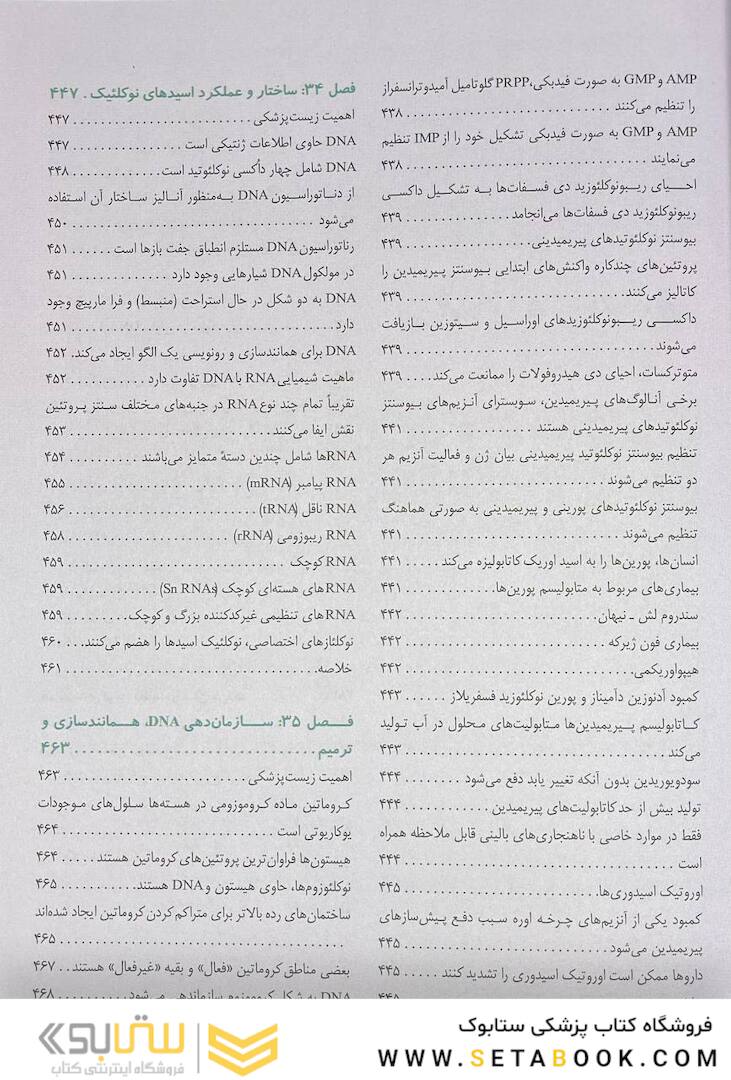 AMP و GMP به صورت فیدبکی، PRPP گلوتامیل آمیدوترانسفراز
را تنظیم می‌کنند ............................ ۴۳۸
AMP و GMP به صورت فیدبکی تشکیل خود را از IMP تنظیم
می‌نمایند ................................ ۴۳۸
احیای ریبونوکلئوزید دی فسفات‌ها به تشکیل داکسی
ریبونوکلئوزید دی فسفات‌ها می‌انجامد ............... ۴۳۹
بیوسنتز نوکلئوتیدهای پیریمیدینی ................. ۴۳۹
پروتئین‌های چندکاره واکنش‌های ابتدایی بیوسنتز پیریمیدین را
کاتالیز می‌کنند ............................. ۴۳۹
داکسی ریبونوکلئوزیدهای اوراسیل و سیتوزین بازیافت
می‌شوند ................................. ۴۳۹
متوترکسات، احیای دی هیدروفولات را ممانعت می‌کند .... ۴۳۹
برخی آنالوگ‌های پیریمیدین، سوبسترای آنزیم‌های بیوسنتز
نوکلئوتیدهای پیریمیدینی هستند .................. ۴۴۱
تنظیم بیوسنتز نوکلئوتید پیریمیدینی بیان ژن و فعالیت آنزیم هر
دو تنظیم می‌شوند ........................... ۴۴۱
بیوسنتز نوکلئوتیدهای پورینی و پیریمیدینی به صورتی هماهنگ
تنظیم می‌شوند ............................. ۴۴۱
انسان‌ها، پورین‌ها را به اسید اوریک کاتابولیزه می‌کند ..... ۴۴۱
بیماری‌های مربوط به متابولیسم پورین‌ها ............. ۴۴۱
سندروم لش ـ نیهان .......................... ۴۴۲
بیماری فون ژیرکه ........................... ۴۴۲
هیپواوریکمی .............................. ۴۴۲
کمبود آدنوزین دآمیناز و پورین نوکلئوزید فسفریلاز ...... ۴۴۳
کاتابولیسم پیریمیدین‌ها متابولیت‌های محلول در آب تولید
می‌کند .................................. ۴۴۳
سودویوریدین بدون آنکه تغییر یابد دفع می‌شود ........ ۴۴۴
تولید بیش از حد کاتابولیت‌های پیریمیدین ............ ۴۴۴
فقط در موارد خاصی با ناهنجاری‌های بالینی قابل ملاحظه همراه
است ................................... ۴۴۴
اوروتیک اسیدوری‌ها .......................... ۴۴۵
کمبود یکی از آنزیم‌های چرخه اوره سبب دفع پیش‌سازهای
پیریمیدین می‌شود ........................... ۴۴۵
داروها ممکن است اوروتیک اسیدوری را تشدید کنند ..... ۴۴۵
فصل ۳۴: ساختار و عملکرد اسیدهای نوکلئیک . ۴۴۷
اهمیت زیست‌پزشکی ......................... ۴۴۷
DNA حاوی اطلاعات ژنتیکی است ................ ۴۴۷
DNA شامل چهار دأکسی نوکلئوتید است ............. ۴۴۸
از دناتوراسیون DNA به‌منظور آنالیز ساختار آن استفاده
می‌شود ................................. ۴۵۰
رناتوراسیون DNA مستلزم انطباق جفت بازها است ...... ۴۵۱
در مولکول DNA شیارهایی وجود دارد .............. ۴۵۱
DNA به دو شکل در حال استراحت (منبسط) و فرا مارپیچ وجود
دارد ................................... ۴۵۱
DNA برای همانندسازی و رونویسی یک الگو ایجاد می‌کند. ۴۵۲
ماهیت شیمیایی RNA با DNA تفاوت دارد ........... ۴۵۲
تقریباً تمام چند نوع RNA در جنبه‌های مختلف سنتز پروتئین
نقش ایفا می‌کنند ............................ ۴۵۳
RNAها شامل چندین دستهٔ متمایز می‌باشند .......... ۴۵۴
RNA پیامبر (mRNA) ........................ ۴۵۵
RNA ناقل (tRNA) .......................... ۴۵۶
RNA ریبوزومی (rRNA) ...................... ۴۵۸
RNA کوچک .............................. ۴۵۹
RNAهای هسته‌ای کوچک (Sn RNAs) ............. ۴۵۹
RNAهای تنظیمی غیرکدکننده بزرگ و کوچک ......... ۴۵۹
نوکلئازهای اختصاصی، نوکلئیک اسیدها را هضم می‌کنند... ۴۶۰
خلاصه .................................. ۴۶۱
فصل ۳۵: سازمان‌دهی DNA، همانندسازی و
ترمیم ............................... ۴۶۳
اهمیت زیست‌پزشکی ......................... ۴۶۳
کروماتین ماده کروموزومی در هسته‌ها سلول‌های موجودات
یوکاریوتی است ............................ ۴۶۴
هیستون‌ها فراوان‌ترین پروتئین‌های کروماتین هستند ..... ۴۶۴
نوکلئوزوم‌ها، حاوی هیستون و DNA هستند ........... ۴۶۵
ساختمان‌های رده بالاتر برای متراکم کردن کروماتین ایجاد شده‌اند
..................................... ۴۶۵
بعضی مناطق کروماتین «فعال» و بقیه «غیرفعال» هستند.. ۴۶۷
DNA به شکل کروموزوم سازماندهی می‌شود .......... ۴۶۸
فروشگاه کتاب پزشکی ستابوک
WWW.SETABOOK.COM
ستابوک
فروشگاه اینترنتی کتاب